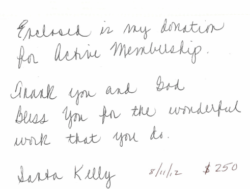 Enclosed is my donation
for Active Membership.
Thank you and God
Bless You for the wonderful
work that you do.
Santa Kelly 5/11/12 $250